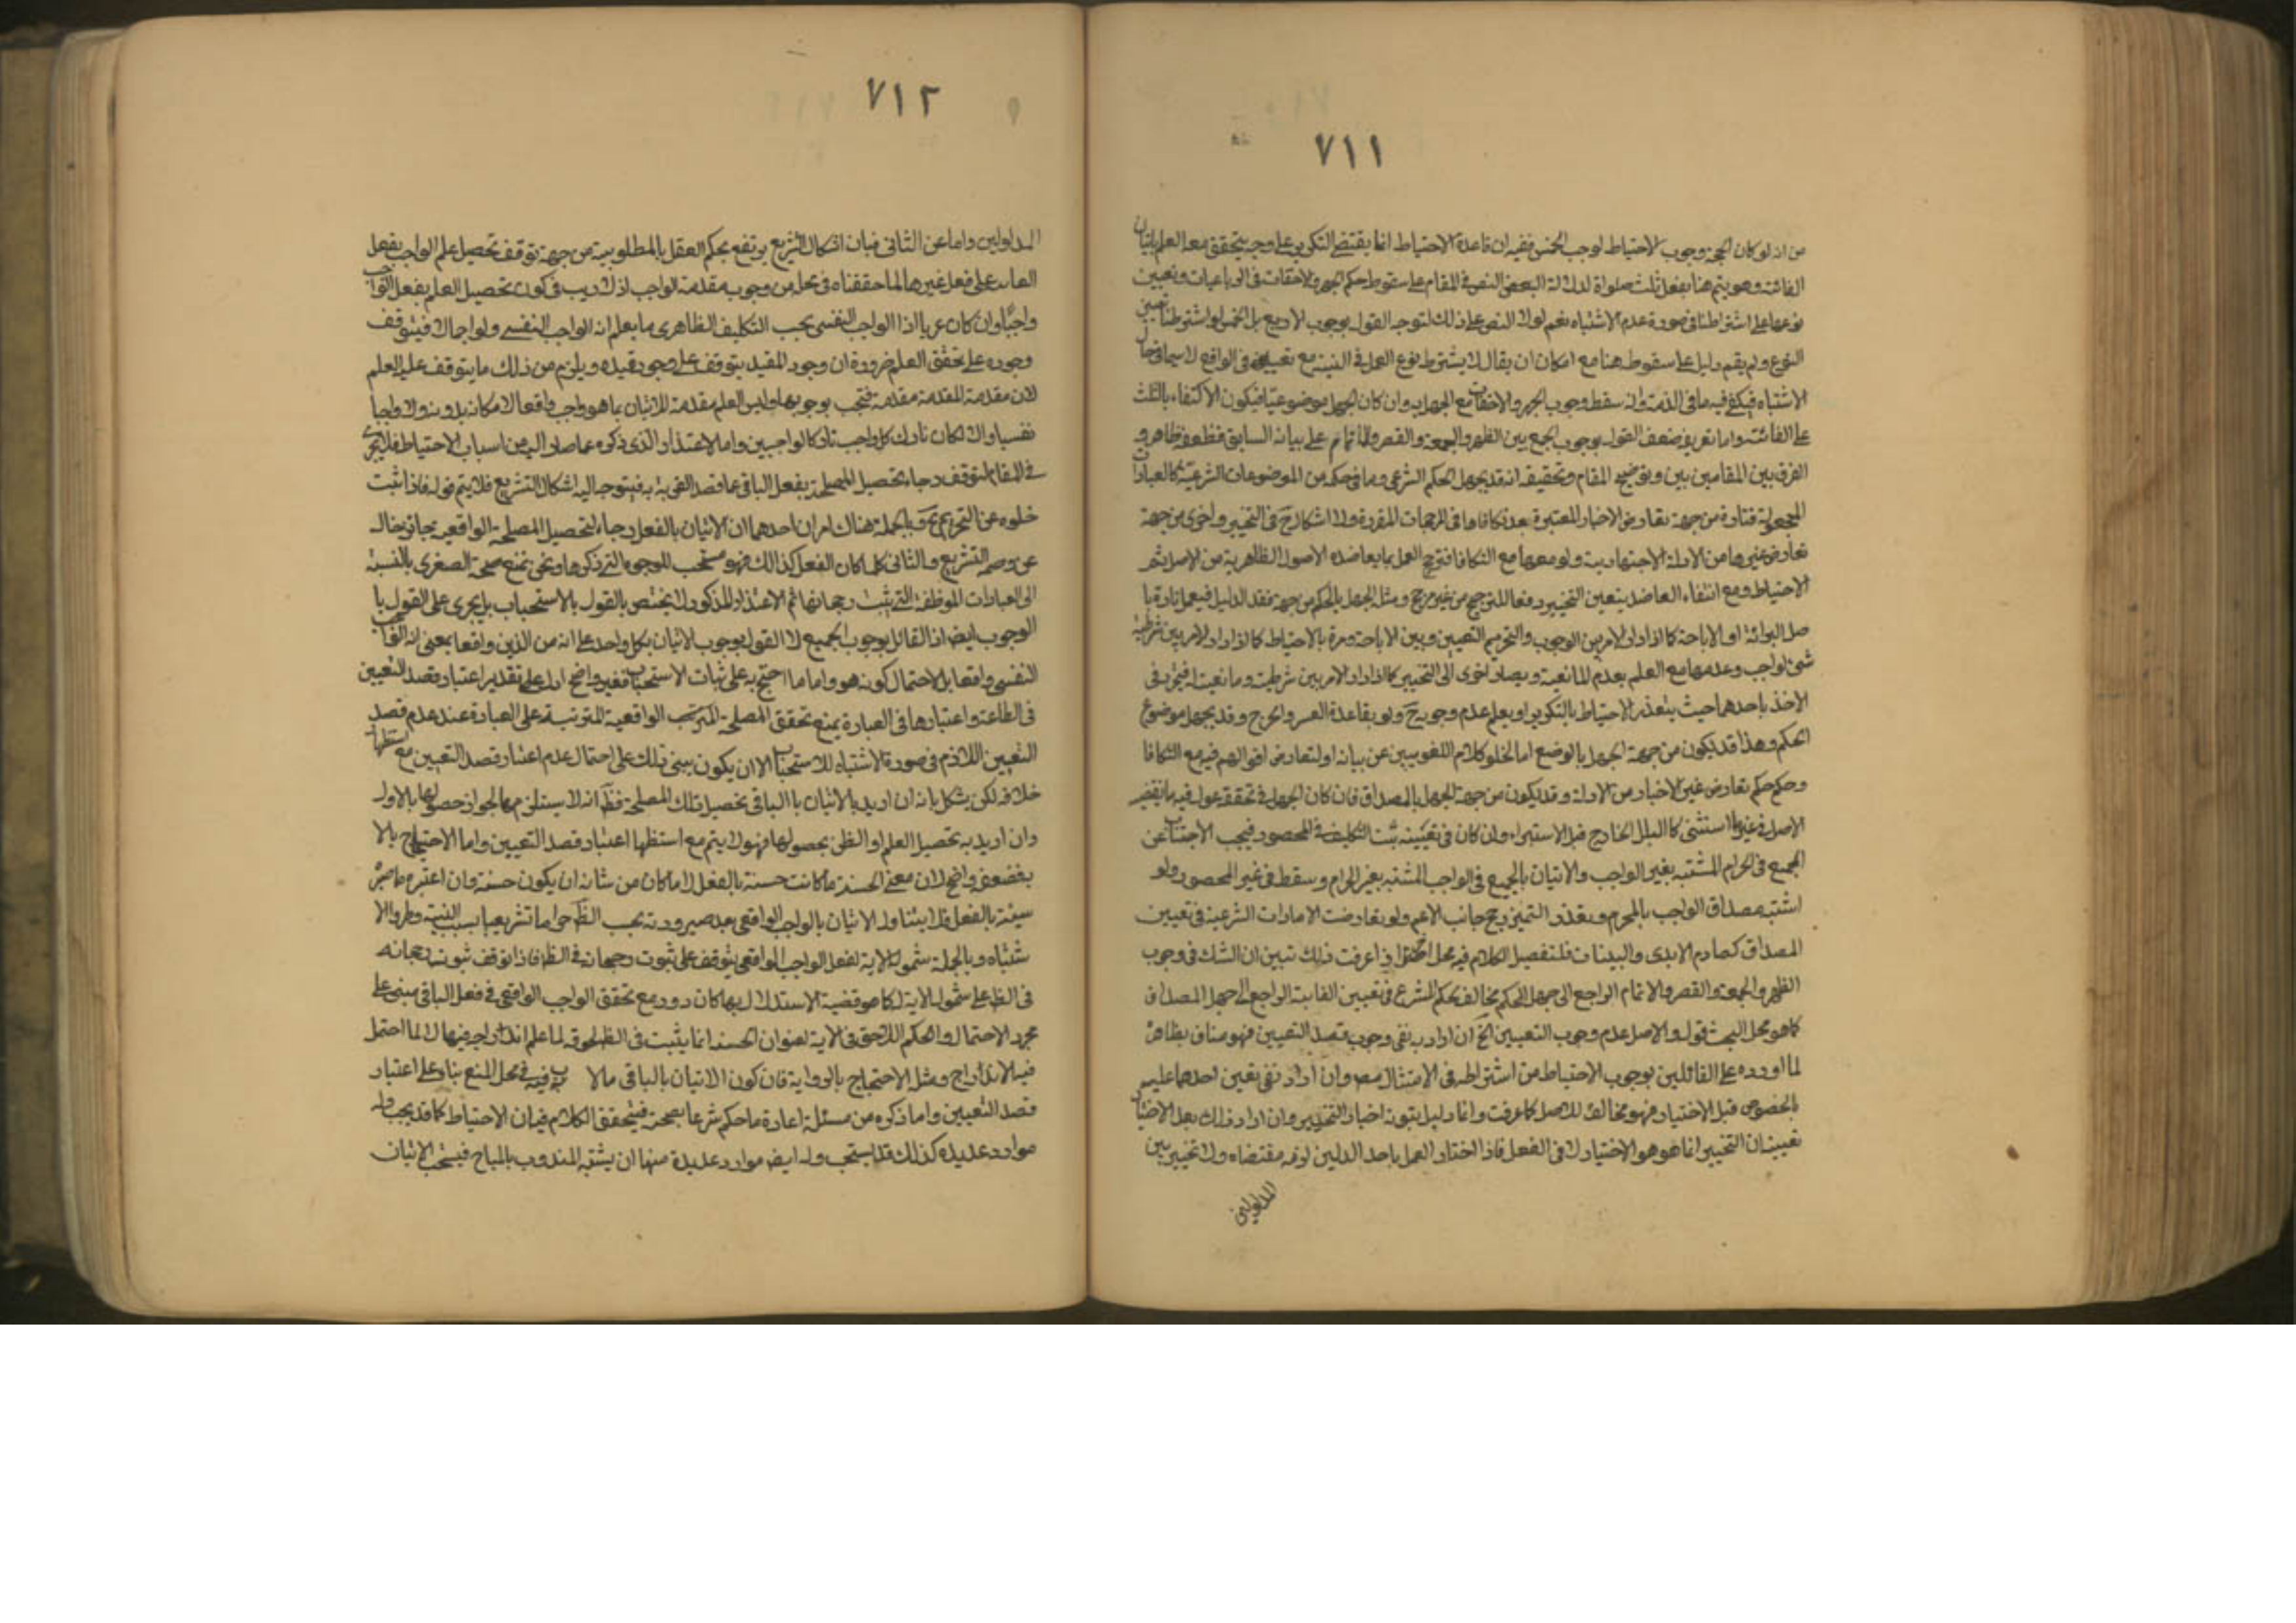 ٧١١
من انه لو كان الحجة وجوب الاحتياط لوجب الخمس ففيه ان قاعدة الاحتياط انما يقتضى التكرير على وجه يتحقق معه العلم باتيان
الفائتة وهو يتم هنا بفعل ثلث صلواة لدلالة البعض النص فى المقام على سقوط حكم الجهر والاخفات فى الرباعيات وتعيين
نوعها على اشتراطنا فى صورة عدم الاشتباه نعم لولا النص على ذلك لتوجه القول بوجوب الاربع بل الخمس لو اشترطنا تعيين
النوع ولم يقم دليل على سقوطه هنا مع امكان ان يقال لا يشترط نوع العمل فى النية مع تعيينه فى الواقع لا سيما فى حال
الاشتباه فيكفى فيه ما فى الذمة وانه سقط وجوب الجهر والاخفات مع الجهل به وان كان الجهل موضوعيا فيكون الاكتفاء بالثلث
على الفائتة واما تفريع ضعف القول بوجوب الجمع بين الظهر والجمعة والقصر والاتمام على بيانه السابق فظ ضعفه ظاهر و
الفرق بين المقامين بين وتوضيح المقام وتحقيقه انه قد يجهل الحكم الشرعى وما فى حكمه من الموضوعات الشرعية كالعبادات
المجعولة فتارة من جهة تعارض الاخبار المعتبرة بعد تكافئها فى المرجحات المقررة ولا اشكال ح فى التخيير واخرى من جهة
تعارض غيرها من الادلة الاجتهادية ولو معها مع التكافأ فترجح العمل بما يعاضده الاصول الظاهرية من الاصل ثم
الاحتياط ومع انتفاء العاضد يتعين التخيير دفعا للترجيح من غير مرجح ومثله الجهل بالحكم من جهة فقد الدليل فيعمل تارة با
صل البرائة او الاباحة كما اذا دار الامر بين الوجوب والتحريم التعيين وبين الاباحة ومرة بالاحتياط كما اذا دار الامر بين شرطية
شئ لواجب وعدمها مع العلم بعدم المانعية ويصار اخرى الى التخيير كما اذا دار الامر بين شرطيته ومانعيته فيتخير فى
الاخذ باحدهما حيث يتعذر الاحتياط بالتكرير او يعلم عدم وجوبه ح ولو بقاعدة العسر والحرج وقد يجهل موضوع
الحكم وهذا قد يكون من جهة الجهل بالوضع اما لخلو كلام اللغويين عن بيانه او لتعارض اقوالهم فيه مع التكافا
وحكمه حكم تعارض غير الاخبار من الادلة وقد يكون من جهة الجهل بالمصداق فان كان الجهل فى تحققه عول فيه بما يقتضيه
الاصل فى غير ما استثنى كالبلل الخارج قبل الاستبراء وان كان فى تعيينه ثبت التكليف فى المحصور فيجب الاجتناب عن
الجميع فى الحرام المشتبه بغير الواجب والاتيان بالجميع فى الواجب المشتبه بغير الحرام وسقط فى غير المحصور ولو
اشتبه مصداق الواجب بالمحرم وتعذر التميز رجح جانب الاهم ولو تعارضت الامارات الشرعية فى تعيين
المصداق كتصادم الايدى والبينات فلتفصيل الكلام فيه محل اخر اذا عرفت ذلك تبين ان الشك فى وجوب
الظهر والجمعة والقصر والاتمام الراجع الى جهل الحكم مخالف لحكم الشرع فى تعيين الفايتة الراجع الى جهل المصداق
كما هو محل البحث قوله والاصل عدم وجوب التعيين الخ ان اراد به نفى وجوب قصد التعيين فهو مناف بظاهره
لما اورده على القائلين بوجوب الاحتياط من اشتراطه فى الامتثال مع وان اراد نفى تعين احدهما عليه
بالخصوص قبل الاختيار فهو مخالف للاصل كما عرفت وانما دليل ثبوته اخبار التخيير وان اراد ذلك بعد الاختيار
تعيينه ان التخيير انما هو هو الاختيار لا فى الفعل فاذا اختار العمل باحد الدلين لزمه مقتضاه ولا تخيير بين
المدلولين
٧١٢
المدلولين واما عن الثانى فبان اشكال التشريع يرتفع بحكم العقل بالمطلوبية من جهة توقف تحصيل علم الواجب بفعل
العابد على فعل غيرها لما حققناه فى محله من وجوب مقدمة الواجب اذ لا ريب فى كون تحصيل العلم بفعل الواجب
واجبا وان كان عريا اذا الواجب النفسى بحب التكليف الظاهرى ما يعلم انه الواجب النفسى ولو اجمالا فيتوقف
وجوده على تحقق العلم ضرورة ان وجود المقيد يتوقف على وجود قيده ويلزم من ذلك ما يتوقف عليه العلم
لان مقدمة المقدمة مقدمة فتجب بوجوبها وليس العلم مقدمة للاتيان بما هو واجب واقعا لامكانه بدونه ولا واجبا
نفسيا والا لكان تارك كل واجب تاركا لواجبين واما الاعتذار الذى ذكره عما صار اليه من اسباب الاحتياط فلا يجرى
فى المقام لتوقف رجاء تحصيل المصلحة بفعل الباقى عما قصد القربة به فيتوجه اليه اشكال التشريع فلا يتم قوله فاذا ثبت
خلوه عن التحريم مع وبالجملة هناك امران احدهما ان الاتيان بالفعل رجاء لتحصيل المصلحة الواقعية بجانه خال
عن وصمة التشريع والثانى كلما كان الفعل كذلك فهو مستحب للوجوه التى ذكرها ونحن نمنع صحة الصغرى بالنسبة
الى العبادات الموظفة التى يثبت رجحانها ثم الاعتذار المذكور لا يختص بالقول بالاستحباب بل يجرى على القول با
الوجوب ايض اذ القائل بوجوب الجميع لا القول بوجوب الاتيان بكل واحد على انه من الدين واقعا بمعنى انه الواجب
النفسى واقعا بل لاحتمال كونه هو واما ما احتج به على ثبات الاستحباب فغير واضح اذ على تقدير اعتبار قصد التعيين
فى الطاعة واعتبارها فى العبادة يمنع تحقق المصلحة المترتب الواقعية المترتبة على العبادة عند عدم قصد
التعيين اللازم فى صورة الاشتباه للاستحباب الا ان يكون يبنى ذلك على احتمال عدم اعتبار قصد التعيين مع استظهار
خلافه لكن يشكل بانه ان اريد بالاتيان با الباقى تحصيل تلك المصلحة فظ انه لا يستلزمها لجواز حصولها بالاول
وان اريد به تحصيل العلم او الظن بحصولها فهو لا يتم مع استظهار اعتبار قصد التعيين واما الاحتجاج بالا
ية فضعفه واضح لان معنى الحسنة ما كانت حسنة بالفعل لا ما كان من شانه ان يكون حسنة وان اعتبره ما صيره
سيئة بالفعل فلا يتناول الاتيان بالواجب الواقعى بعد صيرورته بحب الظ حراما تشريعيا بسبب النية وطرو الا
شتباه وبالجملة شمول الاية لفعل الواجب الواقعى يتوقف على ثبوت رجحانه فى الظ فاذا توقف ثبوت رجحانه
فى الظ على شمول الاية له كما هو قضية الاستدلال بها كان دور مع تحقق الواجب الواقعى فى فعل الباقى مبنى على
مجرد الاحتمال والحكم اللاحق فى الاية لعنوان الحسنة انما يثبت فى الظ لحوقه لما علم اندراجه فيها لا لما احتمل
فيه الاندراج ومثله الاحتجاج بالرواية فان كون الاتيان بالباقى مالا ريب فيه فى محل المنع بناء على اعتبار
قصد التعيين واما ذكره من مسئلة اعادة ما حكم شرعا بصحته فتحقق الكلام فيه ان الاحتياط كما قد يجب وله
موارد عديدة كذلك قد يستحب وله ايض موارد عديدة منها ان يشتبه المندوب بالمباح فيستحب الاتيان